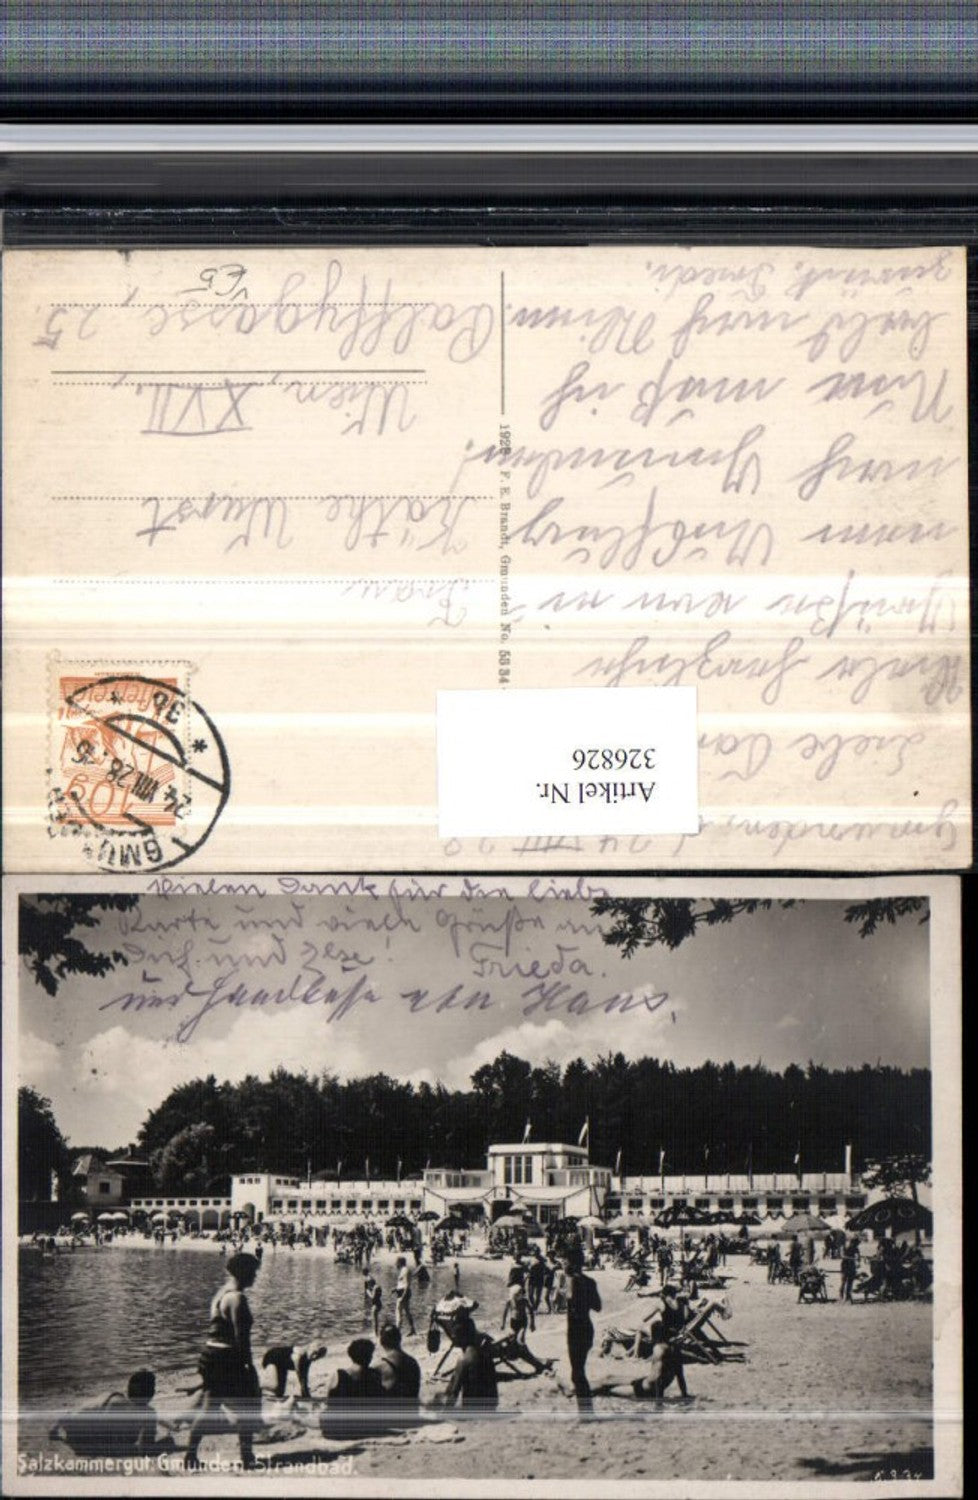 Gmunden, d. 24. VIII. 28
Liebe
Viele herzliche
Grüße von
nach Gmunden!
Nun muß ich
bald nach Wien
zurück. Friedi.
1928 F. E. Brandt, Gmunden No. 5834
Artikel Nr.
326826
10 g
Österreich
GMUNDEN
24. VIII. 28
* 3b *
Frau
Käthe Wurst
Wien, XVII.,
Palffygasse, 25.
Vielen Dank für die liebe
Karte und viele Grüße an
Dich und Ilse! Frieda.
und Handküsse von Hans.
Salzkammergut. Gmunden. Strandbad.